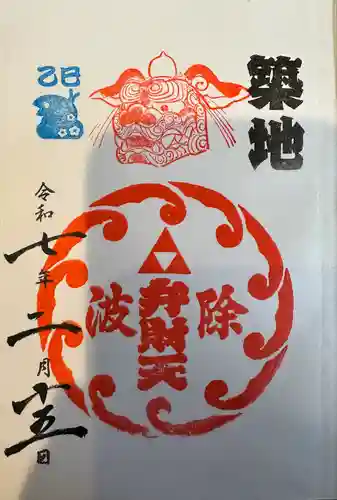 築地
乙巳
波除
弁財天
令和七年二月廿五日